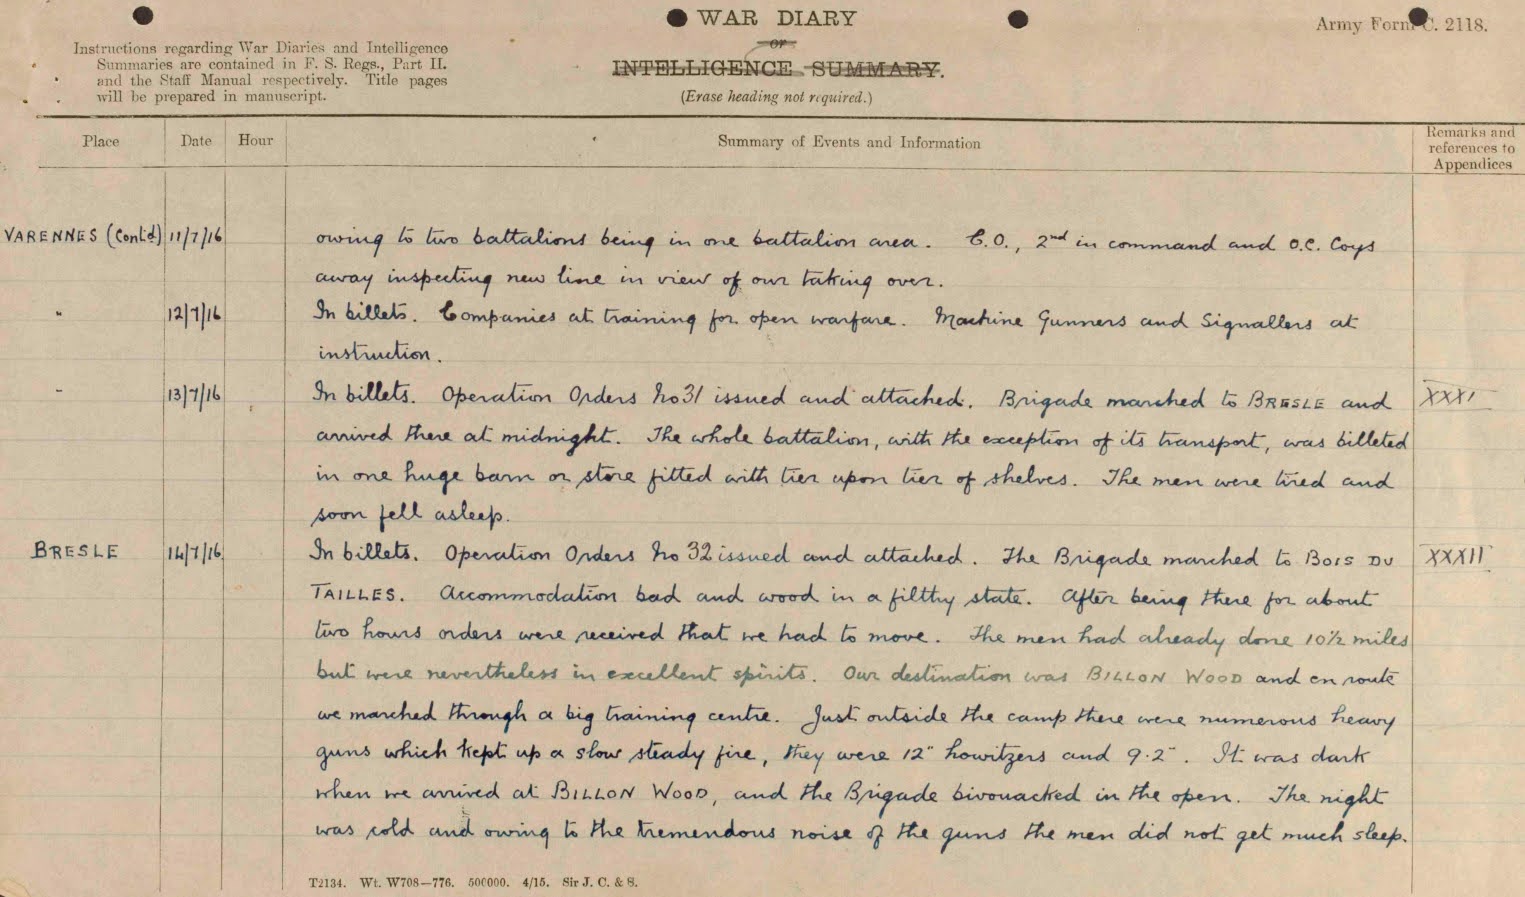 WAR DIARY
or
INTELLIGENCE SUMMARY.
(Erase heading not required.)
Army Form C. 2118.
Instructions regarding War Diaries and Intelligence
Summaries are contained in F. S. Regs., Part II.
and the Staff Manual respectively. Title pages
will be prepared in manuscript.
Place Date Hour Summary of Events and Information Remarks and
references to
Appendices
VARENNES (Contd) 11/7/16 owing to two battalions being in one battalion area. C.O., 2nd in command and O.C. Coys
away inspecting new line in view of our taking over.
" 12/7/16 In billets. Companies at training for open warfare. Machine Gunners and Signallers at
instruction.
" 13/7/16 In billets. Operation Orders No 31 issued and attached. Brigade marched to BRESLE and XXXI
arrived there at midnight. The whole battalion, with the exception of its transport, was billeted
in one huge barn or store fitted with tier upon tier of shelves. The men were tired and
soon fell asleep.
BRESLE 14/7/16 In billets. Operation Orders No 32 issued and attached. The Brigade marched to BOIS DU XXXII
TAILLES. Accommodation bad and wood in a filthy state. After being there for about
two hours orders were received that we had to move. The men had already done 10½ miles
but were nevertheless in excellent spirits. Our destination was BILLON WOOD and en route
we marched through a big training centre. Just outside the camp there were numerous heavy
guns which kept up a slow steady fire, they were 12" howitzers and 9.2". It was dark
when we arrived at BILLON WOOD, and the Brigade bivouacked in the open. The night
was cold and owing to the tremendous noise of the guns the men did not get much sleep.
T2134. Wt. W708—776. 500000. 4/15. Sir J. C. & S.